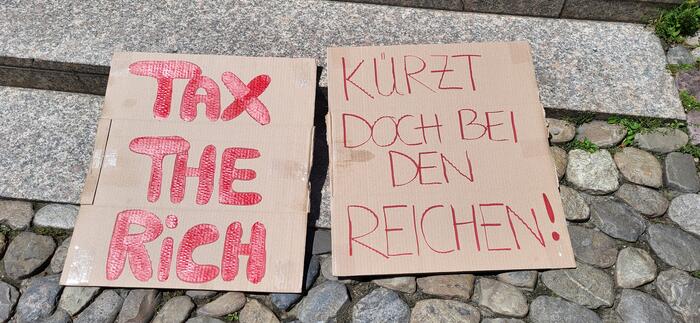 TAX
THE
RiCH
KÜRZT
DOCH BEI
DEN
REICHEN!